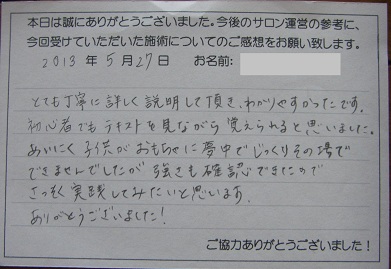 本日は誠にありがとうございました。今後のサロン運営の参考に、
今回受けていただいた施術についてのご感想をお願い致します。
2013 年 5 月 27 日 お名前:
とても丁寧に詳しく説明して頂き、わかりやすかったです。
初心者でもテキストを見ながら覚えられると思いました。
あいにく子供がおもちゃに夢中でじっくりその場で
できませんでしたが強さも確認できたので
さっそく実践してみたいと思います。
ありがとうございました!
ご協力ありがとうございました!